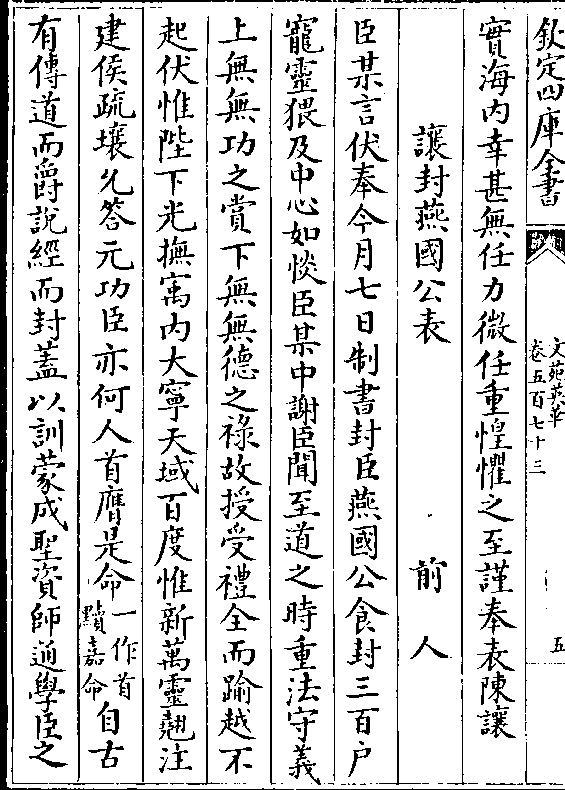 欽定四庫全書
文苑英華
卷五百七十三
五
實海内幸甚無任力微任重惶懼之至謹奉表陳讓
讓封燕國公表 前人
臣某言伏奉今月七日制書封臣燕國公食封三百戶
寵靈猥及中心如惔臣某中謝臣聞至道之時重法守義
上無無功之賞下無無德之祿故授受禮全而踰越不
起伏惟陛下光撫寓内大寧天域百度惟新萬靈翹注
建侯疏壤允答元功臣亦何人首膺是命一作首黷嘉命自古
有傳道而爵說經而封蓋以訓蒙成聖資師通學臣之